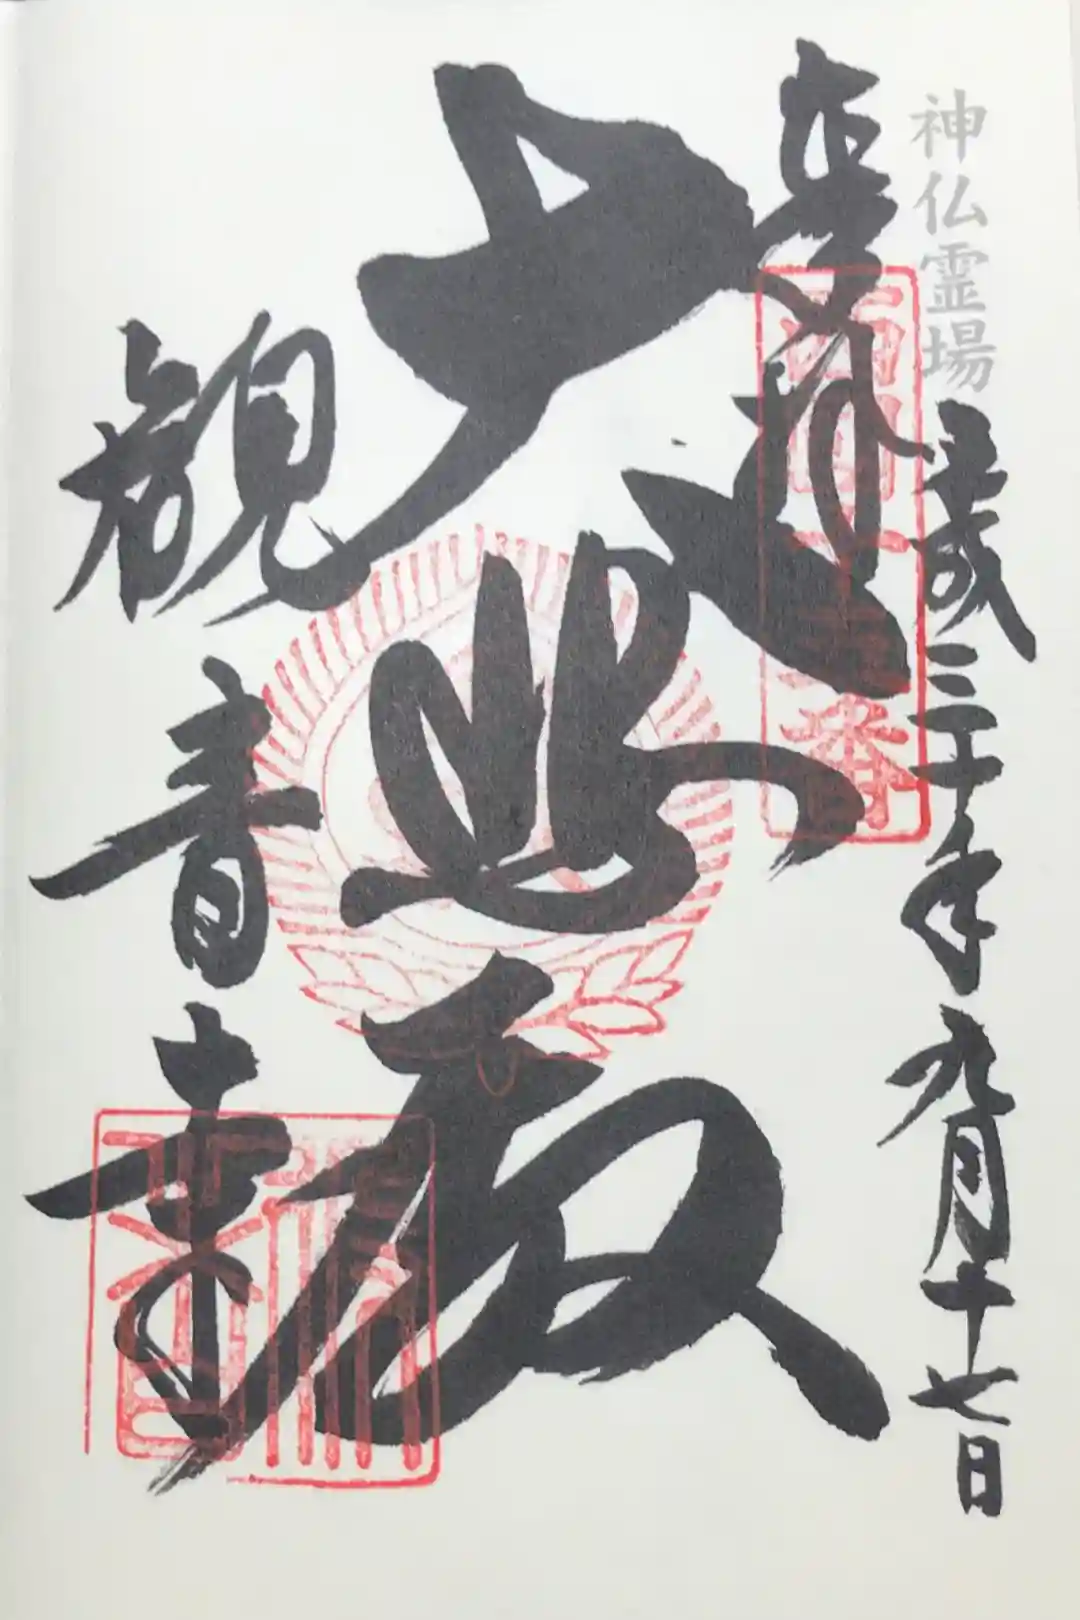 神仏霊場
平成三十年九月十七日
奉拝
大悲殿
観音寺